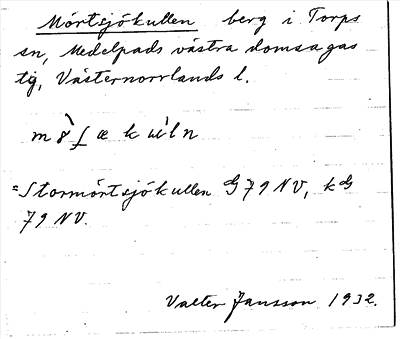 Mörtsjökullen berg i Torps
sn, Medelpads västra domsagas
tg, Västernorrlands l.
=Stormörtsjökullen G79NV, kG
79NV.
Valter Jansson 1932.